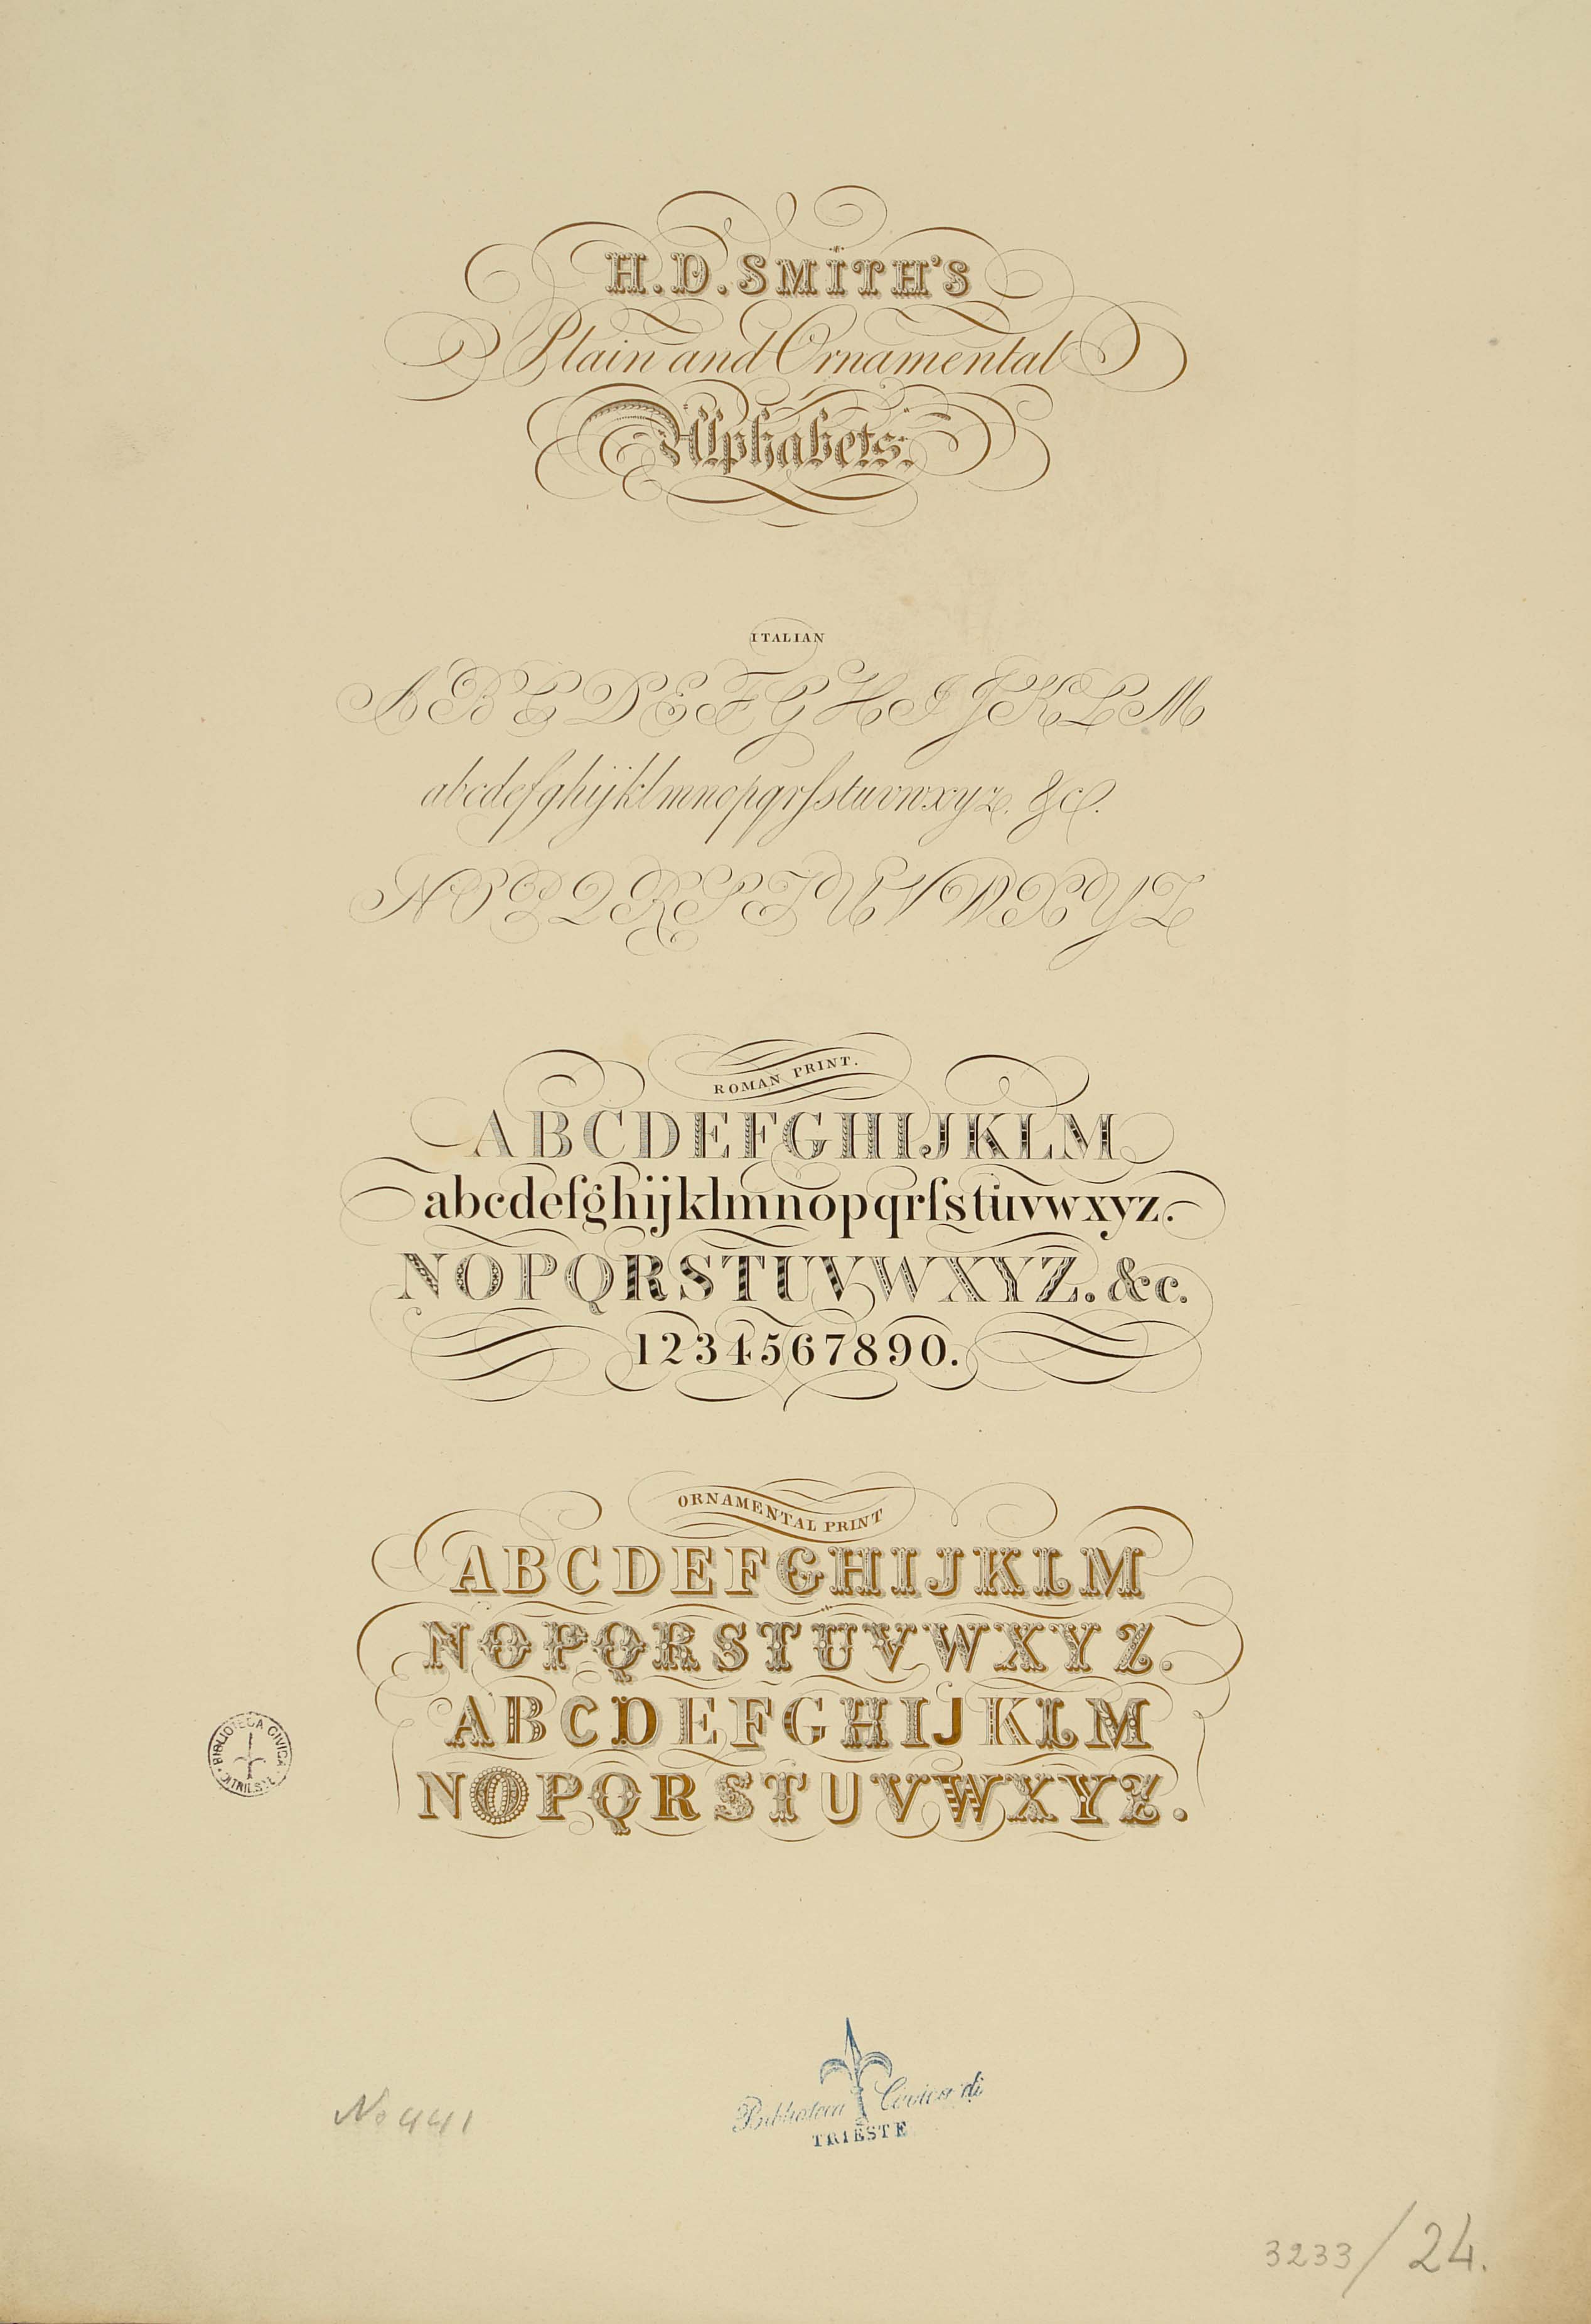 H.D.SMITH'S
Plain and Ornamental
Alphabets.
ITALIAN
A B C D E F G H I J K L M
abcdefghijklmnopqrſstuvwxyz. &c.
N O P Q R S T U V W X Y Z
ROMAN PRINT.
ABCDEFGHIJKLM
abcdefghijklmnopqrſstuvwxyz.
NOPQRSTUVWXYZ. &c.
1234567890.
ORNAMENTAL PRINT
ABCDEFGHIJKLM
NOPQRSTUVWXYZ.
ABCDEFGHIJKLM
NOPQRSTUVWXYZ.
BIBLIOTECA CIVICA
TRIESTE
No 441
Biblioteca Civica di
TRIESTE
3233/24.